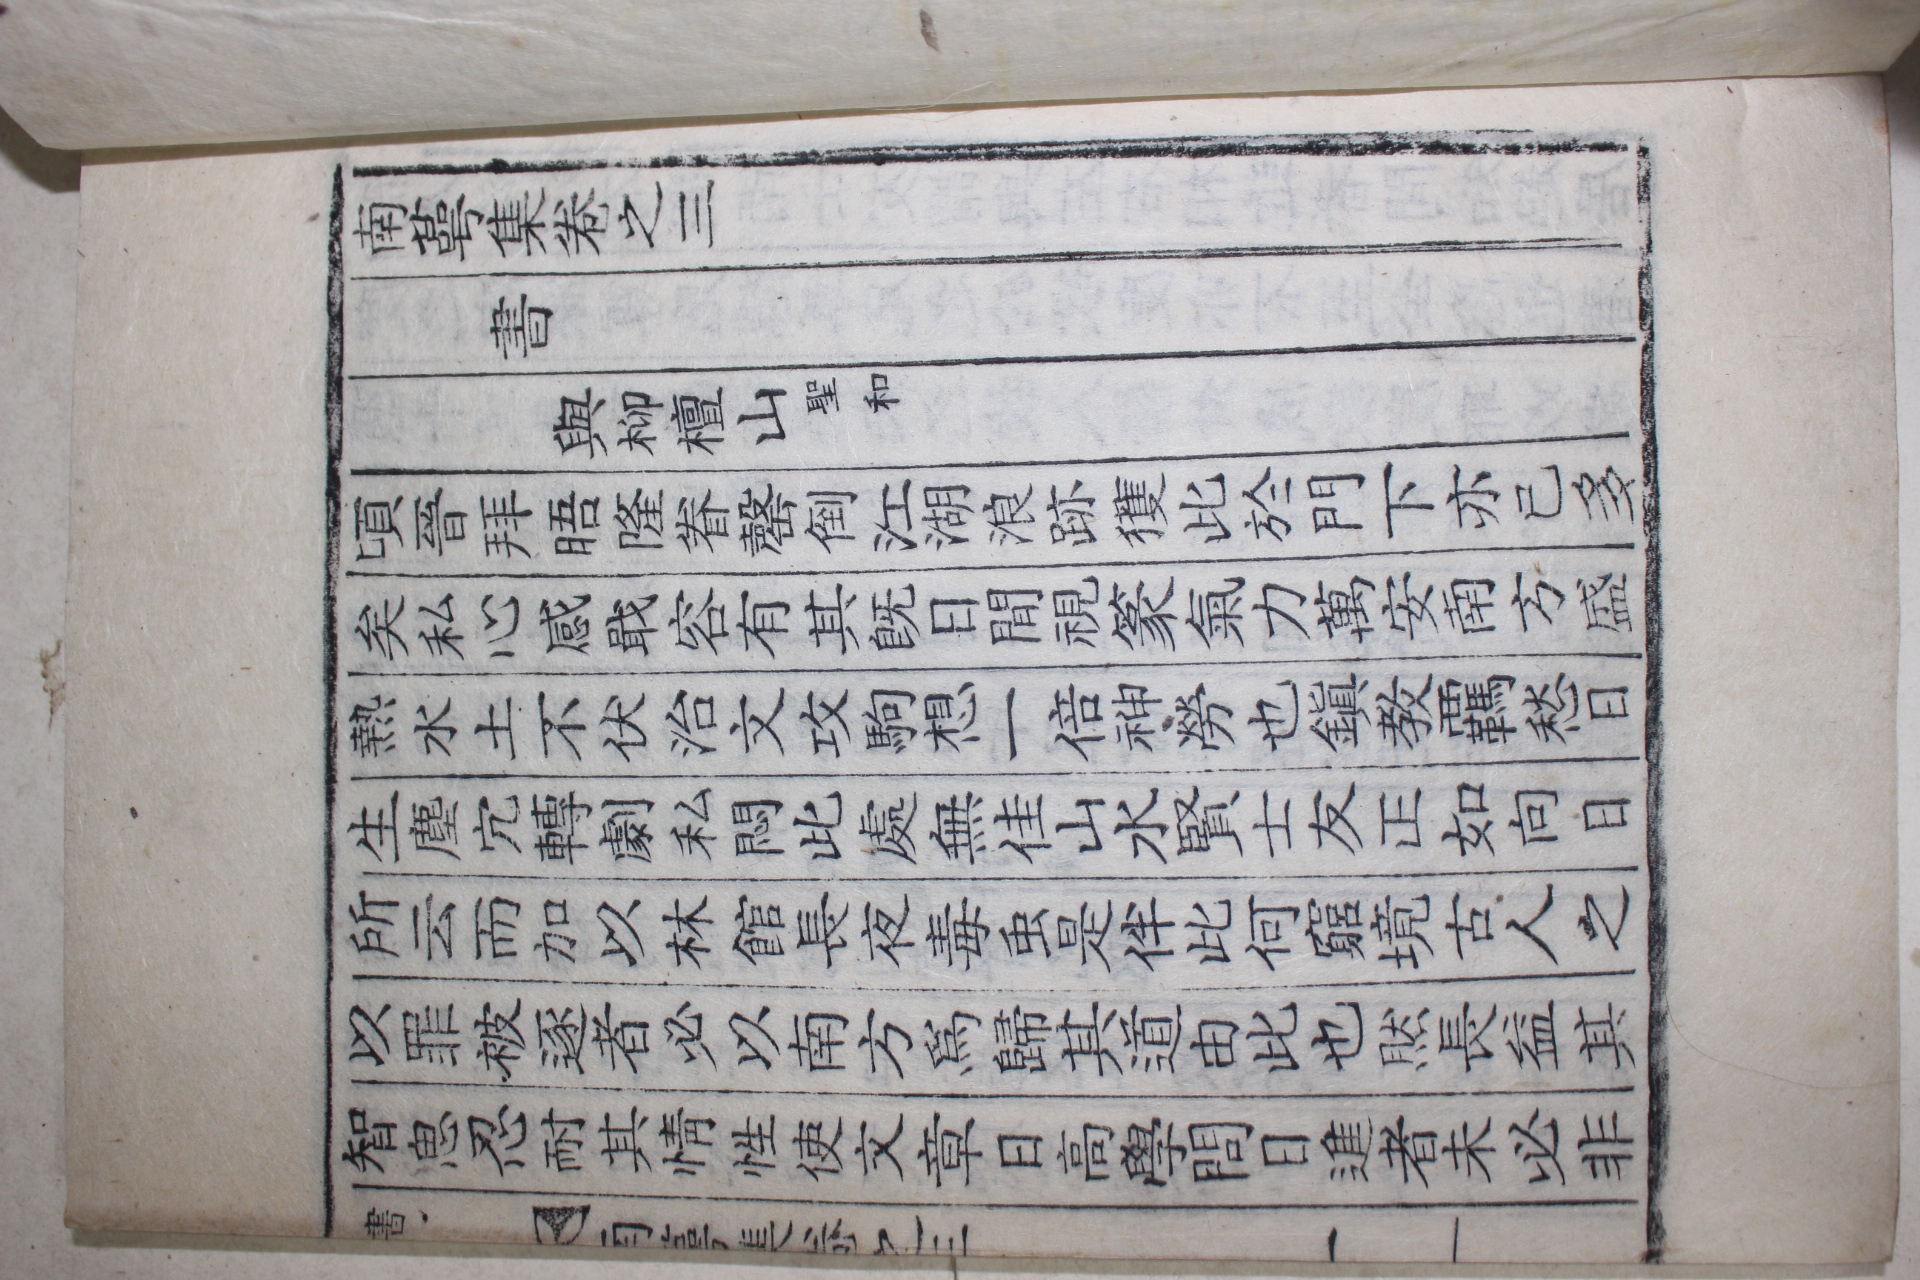 南蕚集卷之三
書
與柳檀山聖和
頃晉拜晤隆眷罄倒江湖浪跡獲此於門下亦已多
矣私心感戢容有其旣日間視篆氣力萬安南方盛
熱水土不伏治文攻駒想一倍神勞也鎭教羈愁日
生塵宂轉劇私悶此處無佳山水賢士友正如向日
所云而加以林館長夜毒虫是伴此何窮境古人之
以罪被逐者必以南方爲歸其道由此也然長益其
智思忍耐其情性使文章日高學問日進者未必非
書
南蕚集卷之三
一